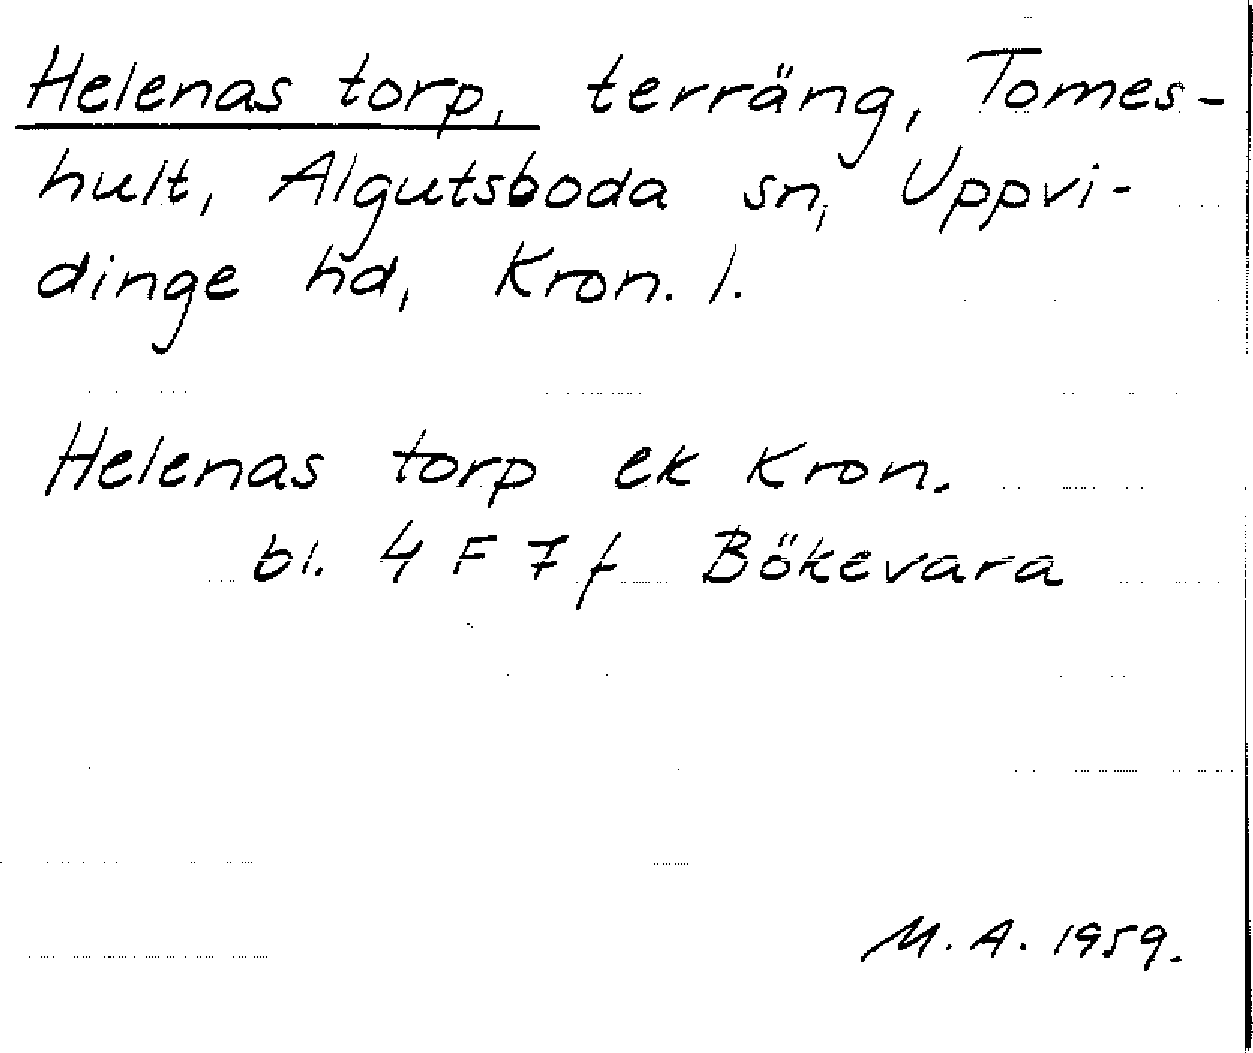 Helenas torp, terräng, Tomes-
hult, Algutsboda sn, Uppvi-
dinge hd, Kron. l.
Helenas torp ek Kron.
bl. 4 F 7 f Bökevara
M. A. 1959.